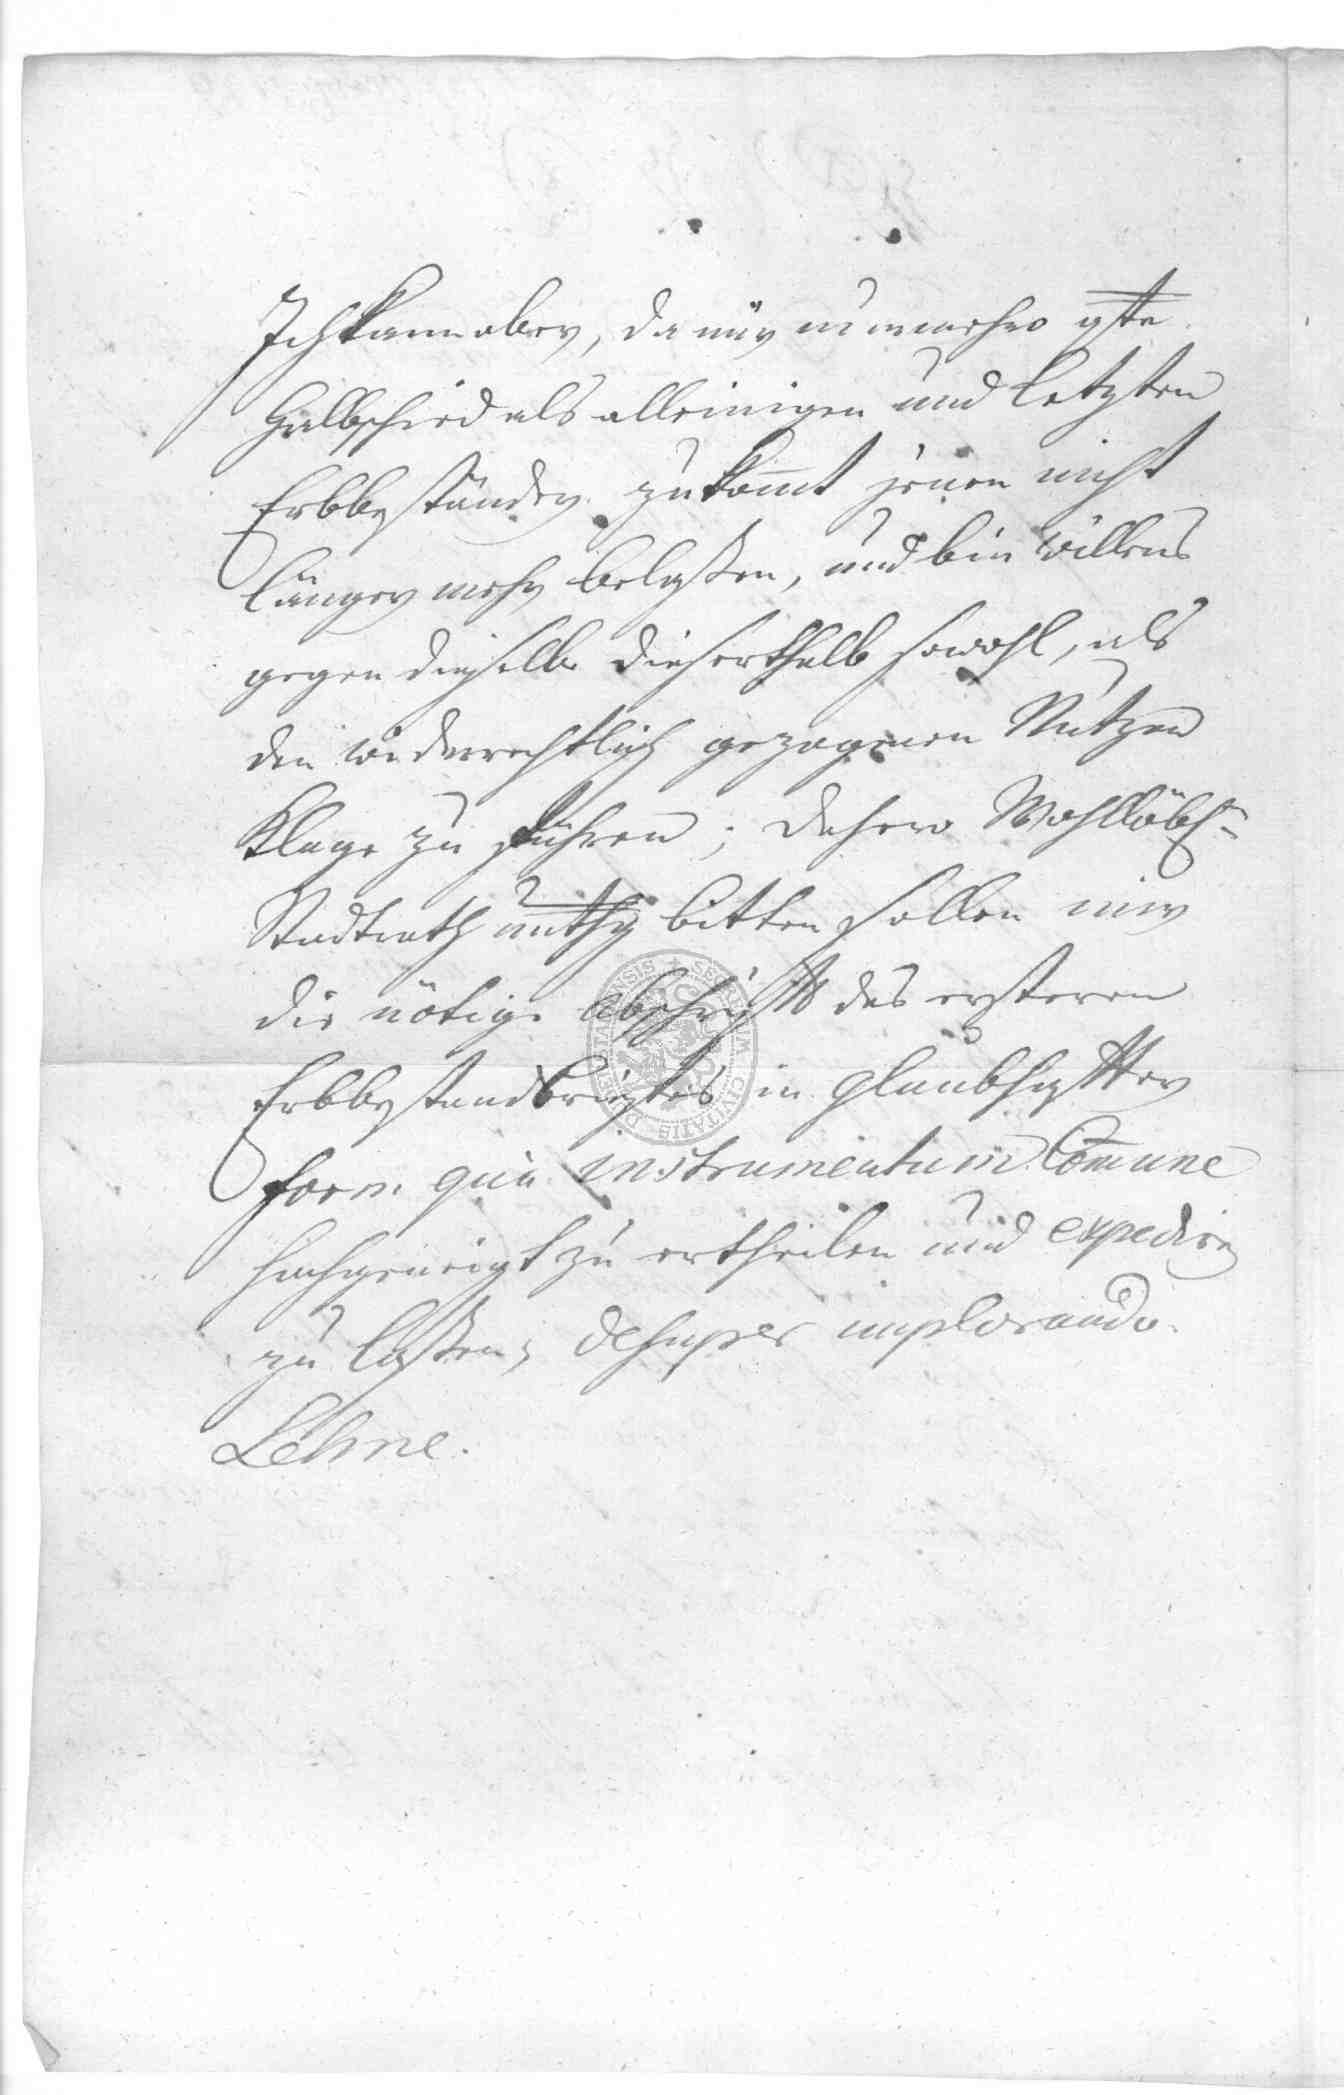 Ich kann aber, da mir nunmehro gste
Halbschied als alleinigen und letzten
Erbbeständer zukom̅t jenen nicht
länger mehr belaßen, und bin willens
gegen dieselbe dieserthalb sowohl, als
den widerrechtlich gezogenen Nutzen
Klage zu führen; dahero Wohllöbl.
Stadtrath unthg bitten sollen mir
die nötige Abschrifft des ersteren
Erbbestandbriefes in glaubhaffter
form quà instrumentum Com̅une
hochgeneigt zu ertheilen und expedire
zu laßen, desuper implorando.
Lehne.
SECRETUM CIVITATIS